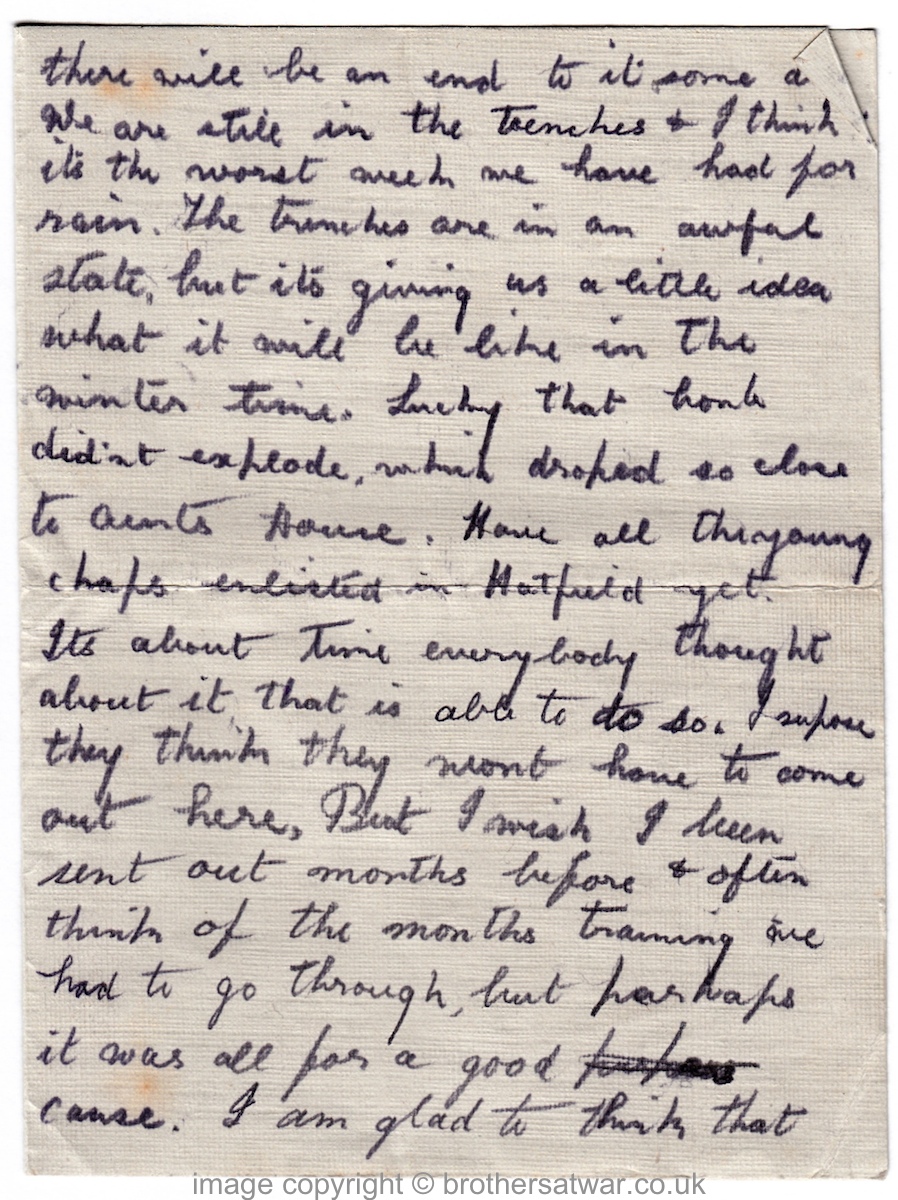 there will be an end to it some d
We are still in the trenches & I think
it's the worst week we have had for
rain. The trenches are in an awful
state, but its giving us a little idea
what it will be like in the
winter time. Lucky that bomb
did'nt explode, which droped so close
to Aunts House. Have all the young
chaps enlisted in Hatfield yet.
Its about time everybody thought
about it, that is able to do so. I supose
they think they wont have to come
out here, But I wish I been
sent out months before & often
think of the months training we
had to go through, but perhaps
it was all for a good
cause. I am glad to think that
image copyright © brothersatwar.co.uk